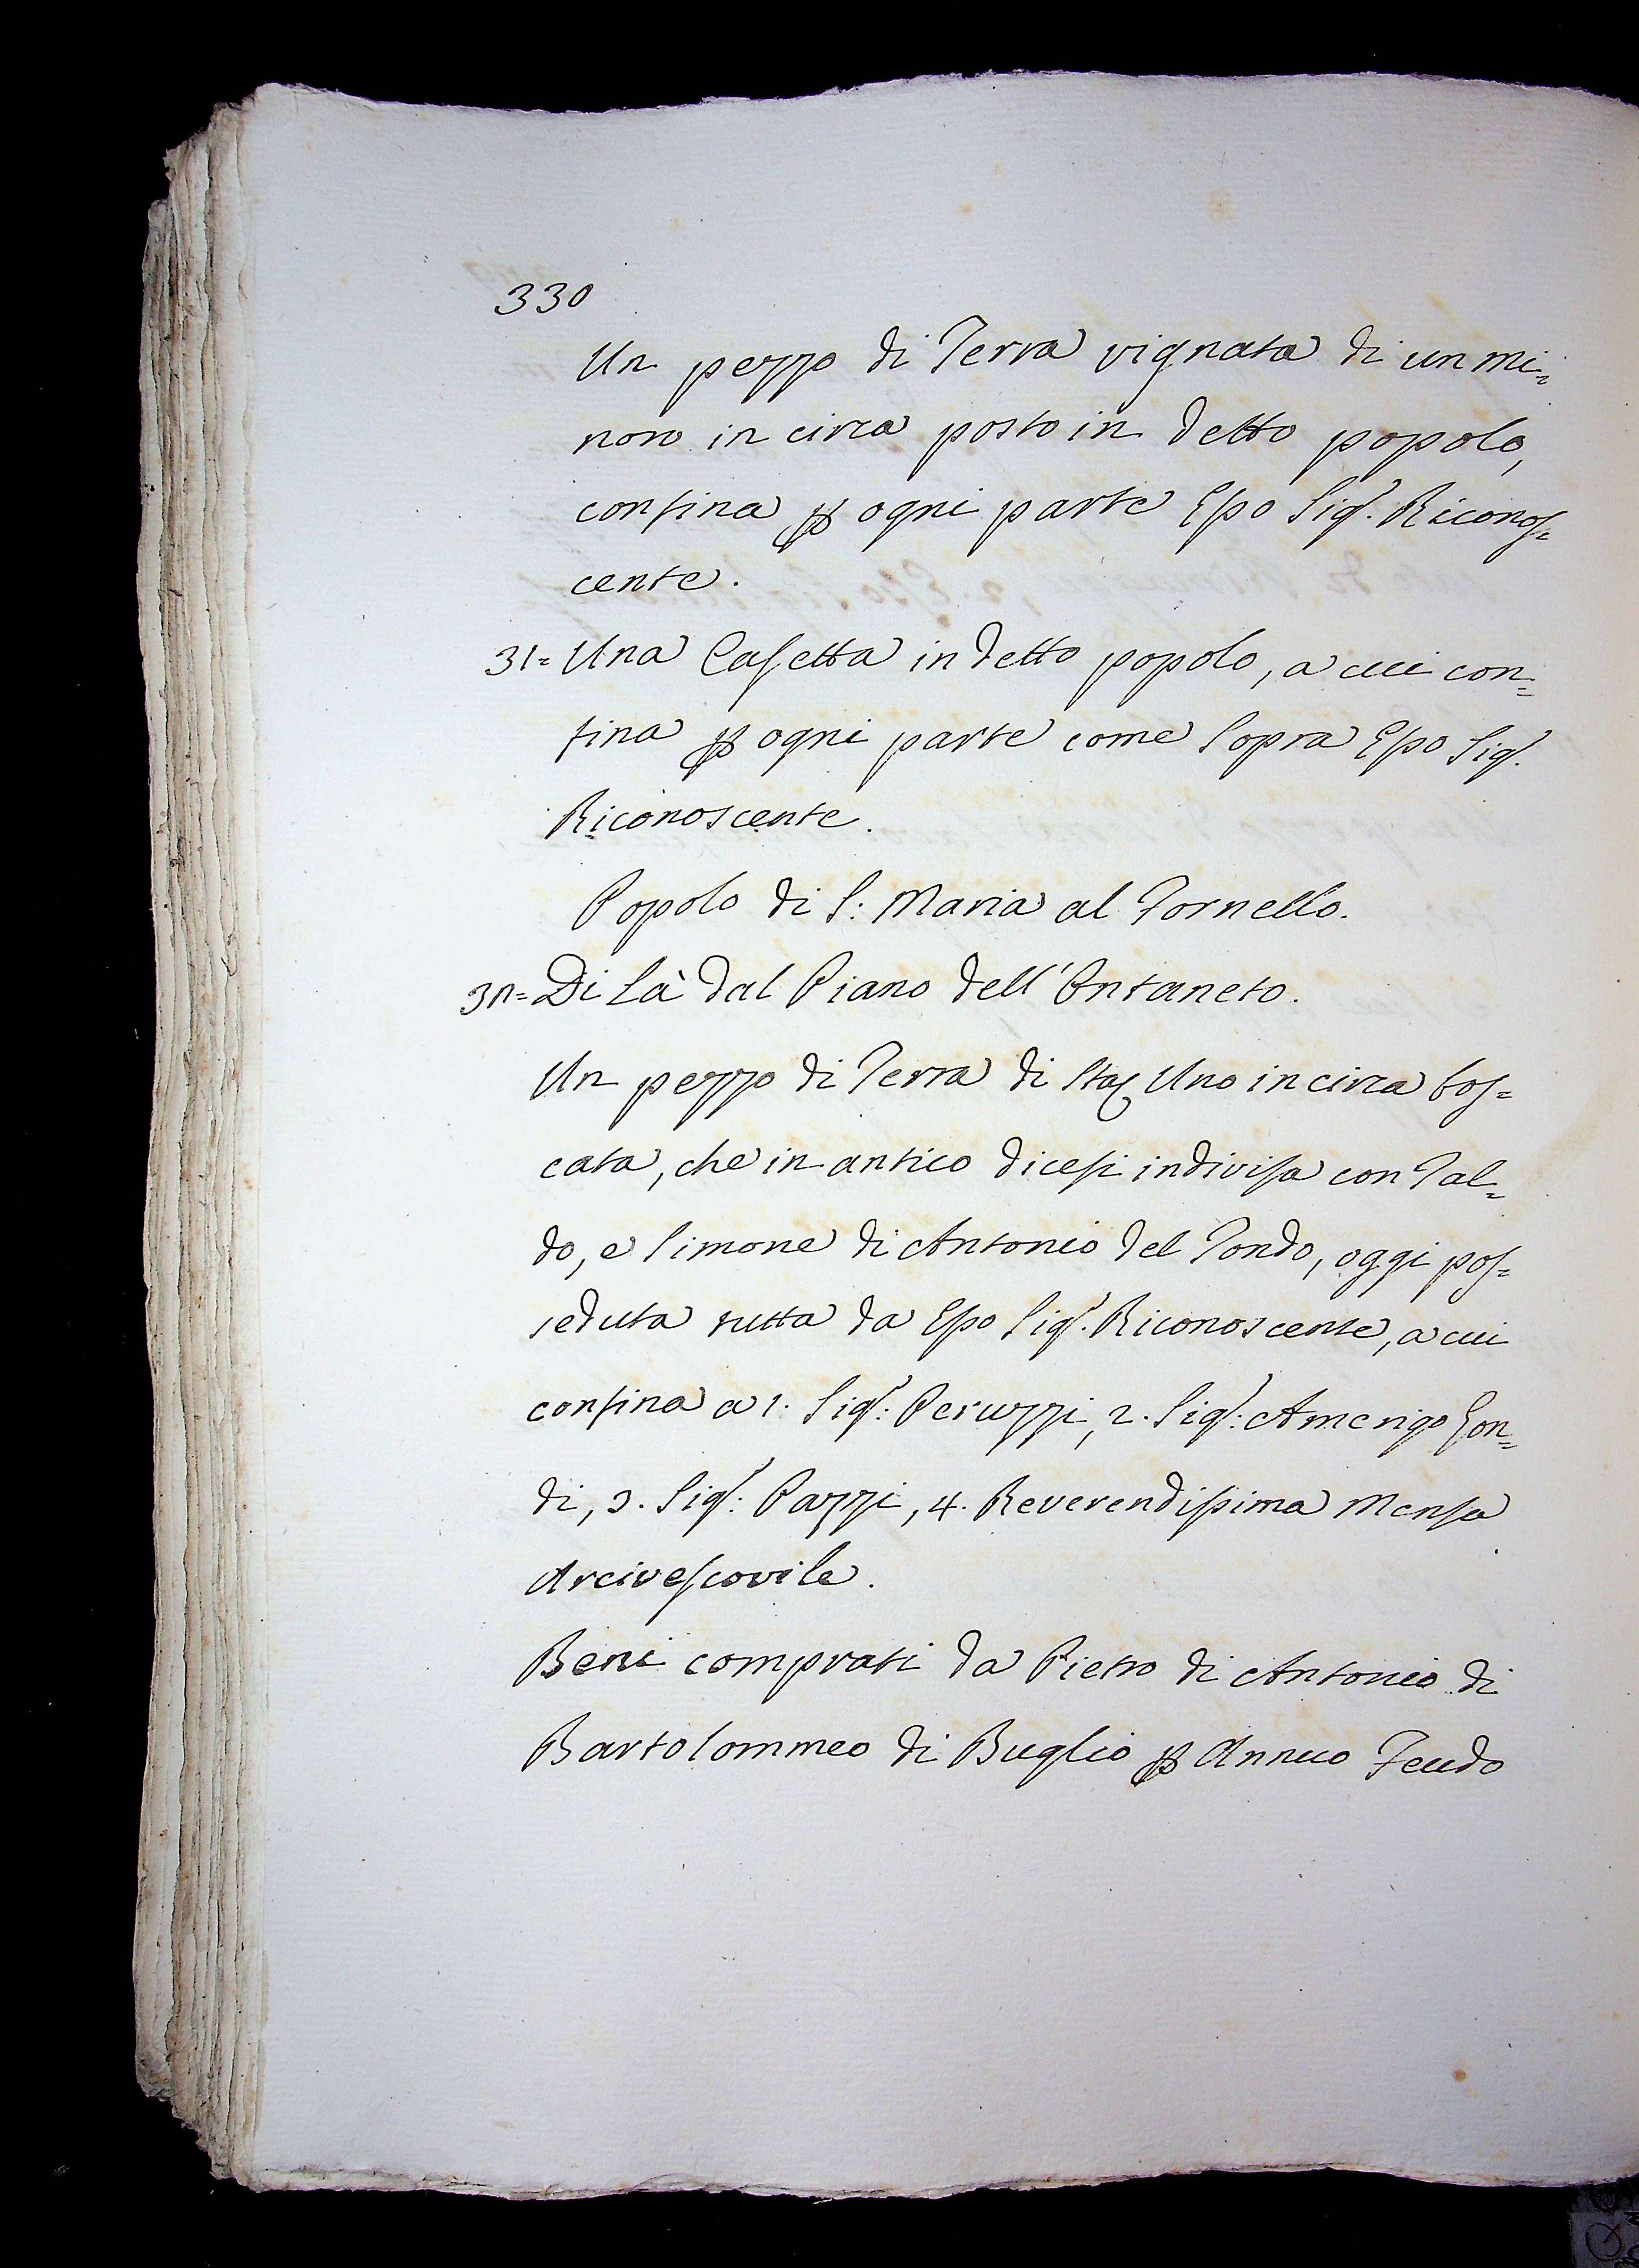 330
Un pezzo di Terra vignata di un mi=
nore in circa posto in detto popolo,
confina ꝑ ogni parte Esso Sig.ʳ Riconos=
cente.
31= Una Casetta in detto popolo, a cui con=
fina ꝑ ogni parte come sopra Esso Sig.ʳ
Riconoscente.
Popolo di S: Maria al Tornello.
32= Di là dal Piano dell'Ontaneto.
Un pezzo di Terra di Sta: Uno in circa bos=
cata, che in antico dicesi indivisa con Tal=
do, e Simone di Antonio del Tondo, oggi pos=
seduta tutta da Esso Sig.ʳ Riconoscente, a cui
confina a 1. Sig.ʳ: Peruzzi, 2. Sig.ʳ: Amerigo Gon=
di, 3. Sig.ʳ: Pazzi, 4. Reverendissima Mensa
Arcivescovile.
Beni comprati da Pietro di Antonio di
Bartolommeo di Buglio ꝑ Annuo Feudo